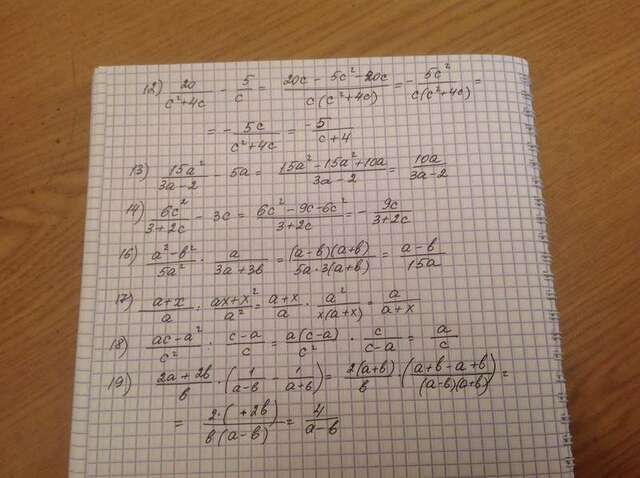 12) 20/(c²+4c) - 5/c = (20c - 5c² - 20c)/(c(c²+4c)) = - 5c²/(c(c²+4c)) =
= - 5c/(c²+4c) = -5/(c+4)
13) 15a²/(3a-2) - 5a = (15a² - 15a² + 10a)/(3a-2) = 10a/(3a-2)
14) 6c²/(3+2c) - 3c = (6c² - 9c - 6c²)/(3+2c) = - 9c/(3+2c)
16) (a²-b²)/5a² · a/(3a+3b) = (a-b)(a+b)/(5a·3(a+b)) = (a-b)/15a
17) (a+x)/a : (ax+x²)/a² = (a+x)/a · a²/(x(a+x)) = a/(a+x)
18) (ac-a²)/c² : (c-a)/c = a(c-a)/c² · c/(c-a) = a/c
19) (2a+2b)/b · (1/(a-b) - 1/(a+b)) = 2(a+b)/b · ((a+b-a+b)/((a-b)(a+b))) =
= 2·( +2b)/(b(a-b)) = 4/(a-b)